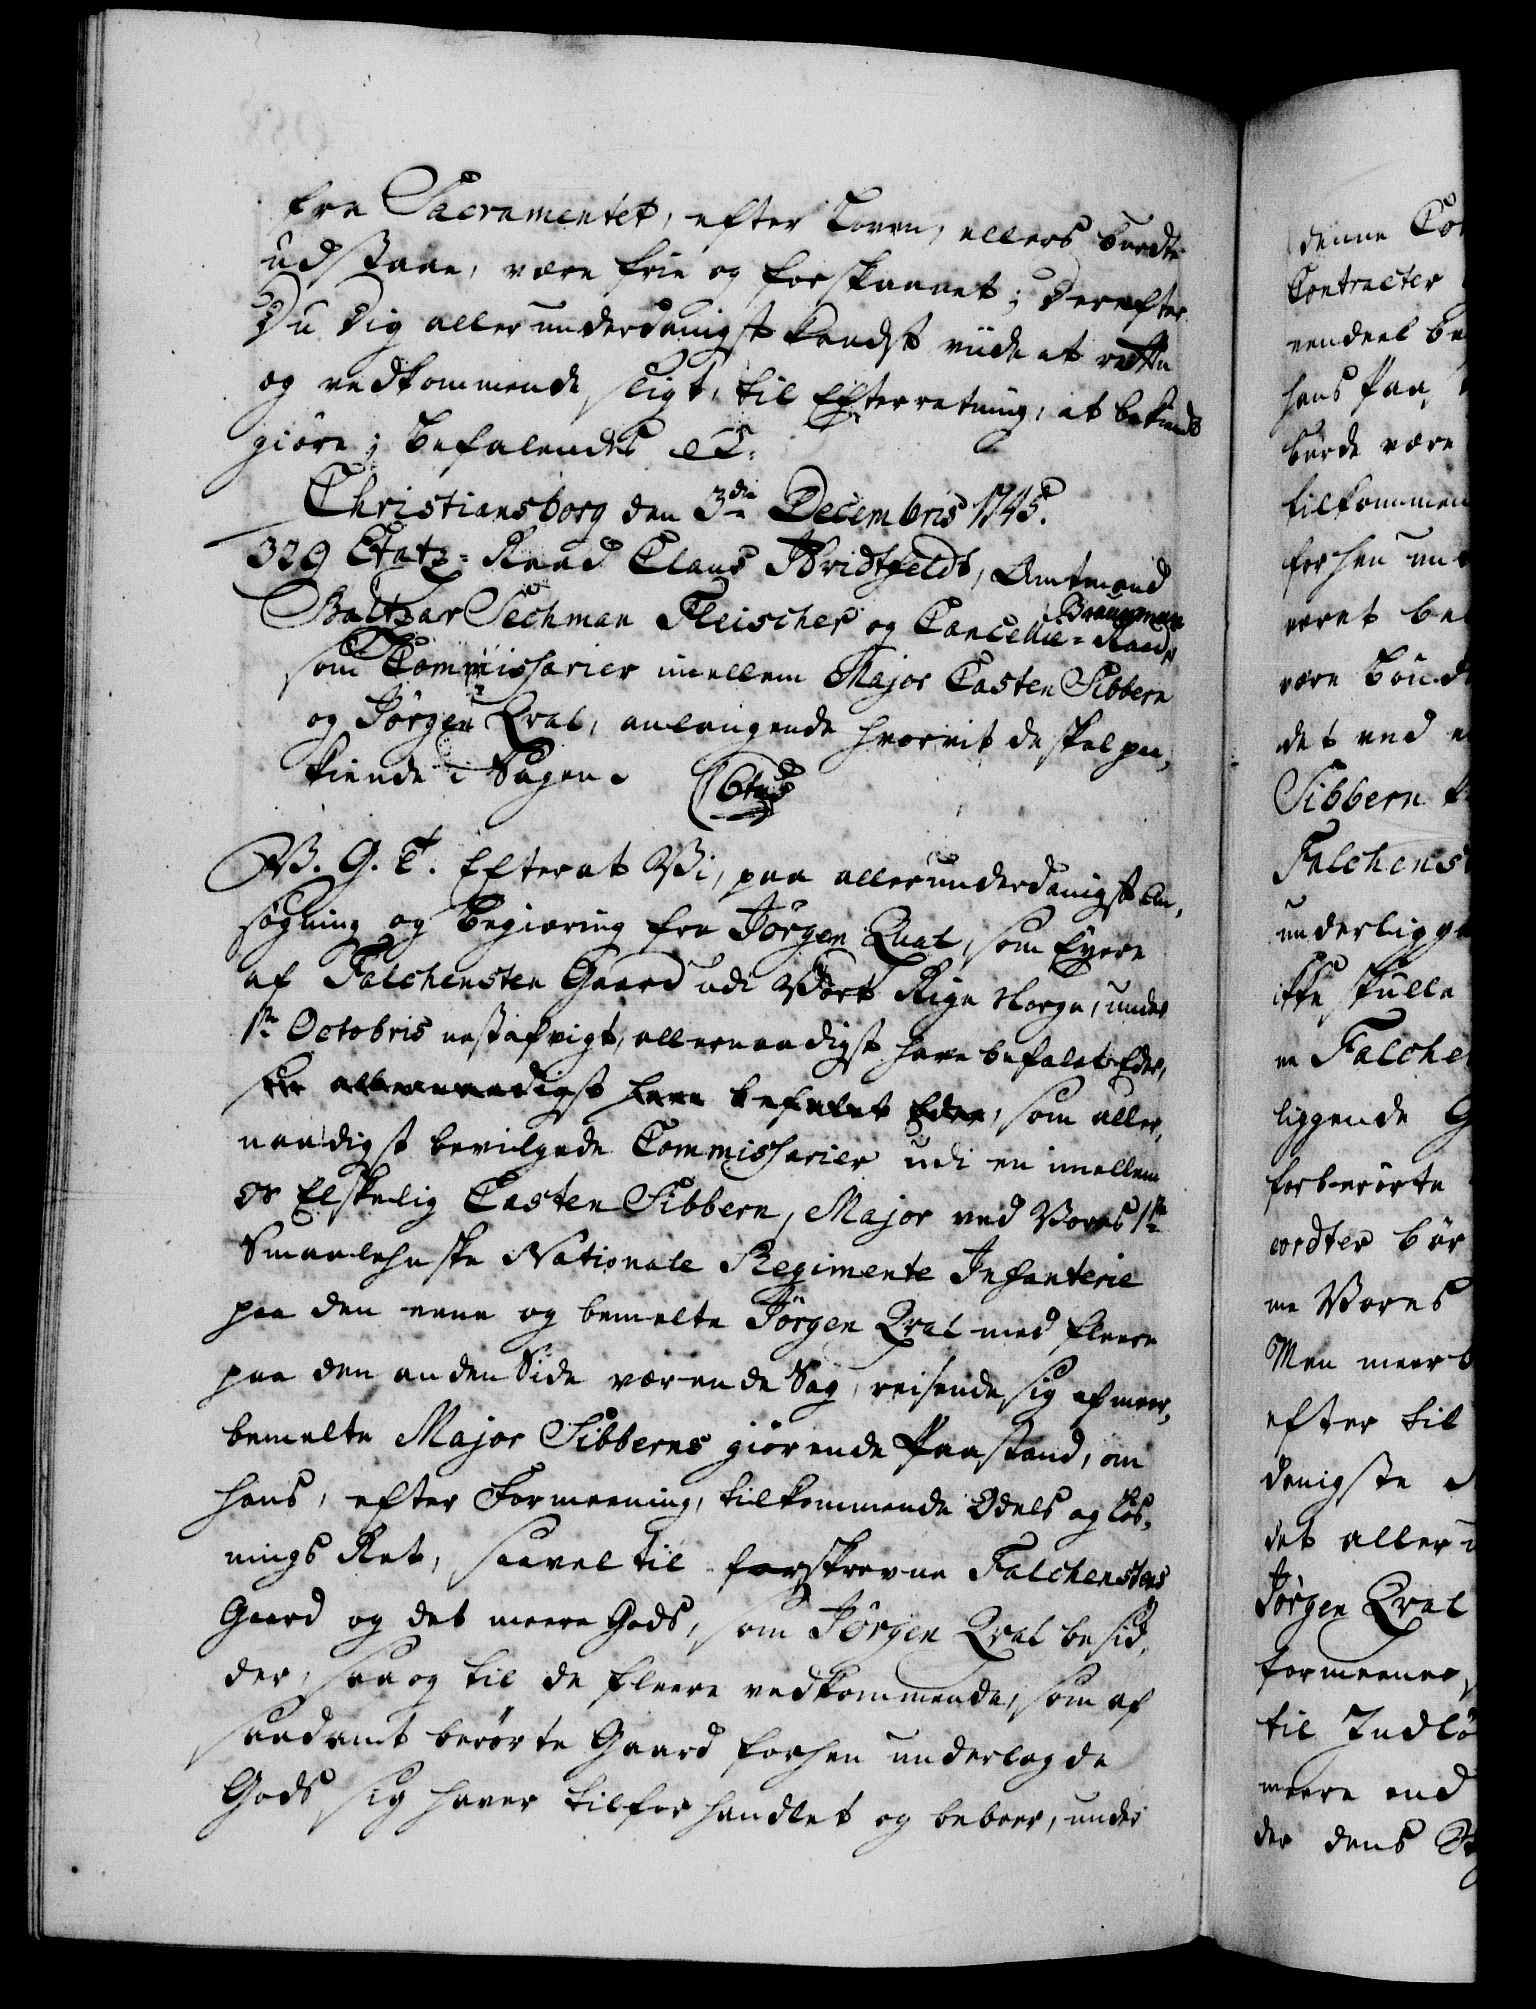 fra Sacramentet, efter Loven, ellers burdte
udstaae, være frie og forskaanet; Derefter
Du Dig allerunderdanigst kandst viide at rette
og vedkommende sligt, til Efterretning, at bekiendt
giøre; Befalendes etc.
Christiansborg den 3die Decembris 1745.
329 Etatz-Raad Claus Hvidtfeldt, Amtmand
Baltzar Sechman Fleischer og Cancellie-Raad Braugman
som Commissarier imellem Major Casten Sibbern
og Jørgen Qval, anlangende hvorvit de skal paa,
kiende i Sagen.
V. G. T. Efterat Vi, paa allerunderdanigst An,
søgning og Begiering fra Jørgen Qual, som Eyere
af Falchensten Gaard udi Vort Rige Norge, under
1ste Octobris nestafvigt, allernaadigst have befalet Eder,
allernaadigst have befalet Eder, som aller,
naadigst bevilgede Commissarier udi en imellem
os Elskelig Casten Sibbern, Major ved Vores 1ste
Smaalehnske Nationale Regimente Infanterie
paa den eene og bemelte Jørgen Qval med fleere
paa den anden Side værende Sag, reisende sig af meer,
bemelte Major Sibberns giørende Paastand, om
hans, efter Formeening, tilkommende Odels og Løs,
nings Ret, saavel til forskrevne Falchenstens
Gaard og det meere Gods, som Jørgen Qval besid,
der, saa og til de fleere vedkommende, som af
saadant berørte Gaard forhen underlagde
Gods sig haver tilforhandlet og beboer, under
denne
Contracter
hans Paa
burde være
tilkommen
forhen
været
være
det ved
Sibbern
Falchens
underligge
ikke skulle
Falche
liggende G
forberørte
bør
Vores
Men meerb
efter til
danigste
det aller
Jørgen Qval
formeener
til Indlø
meere end
der dens